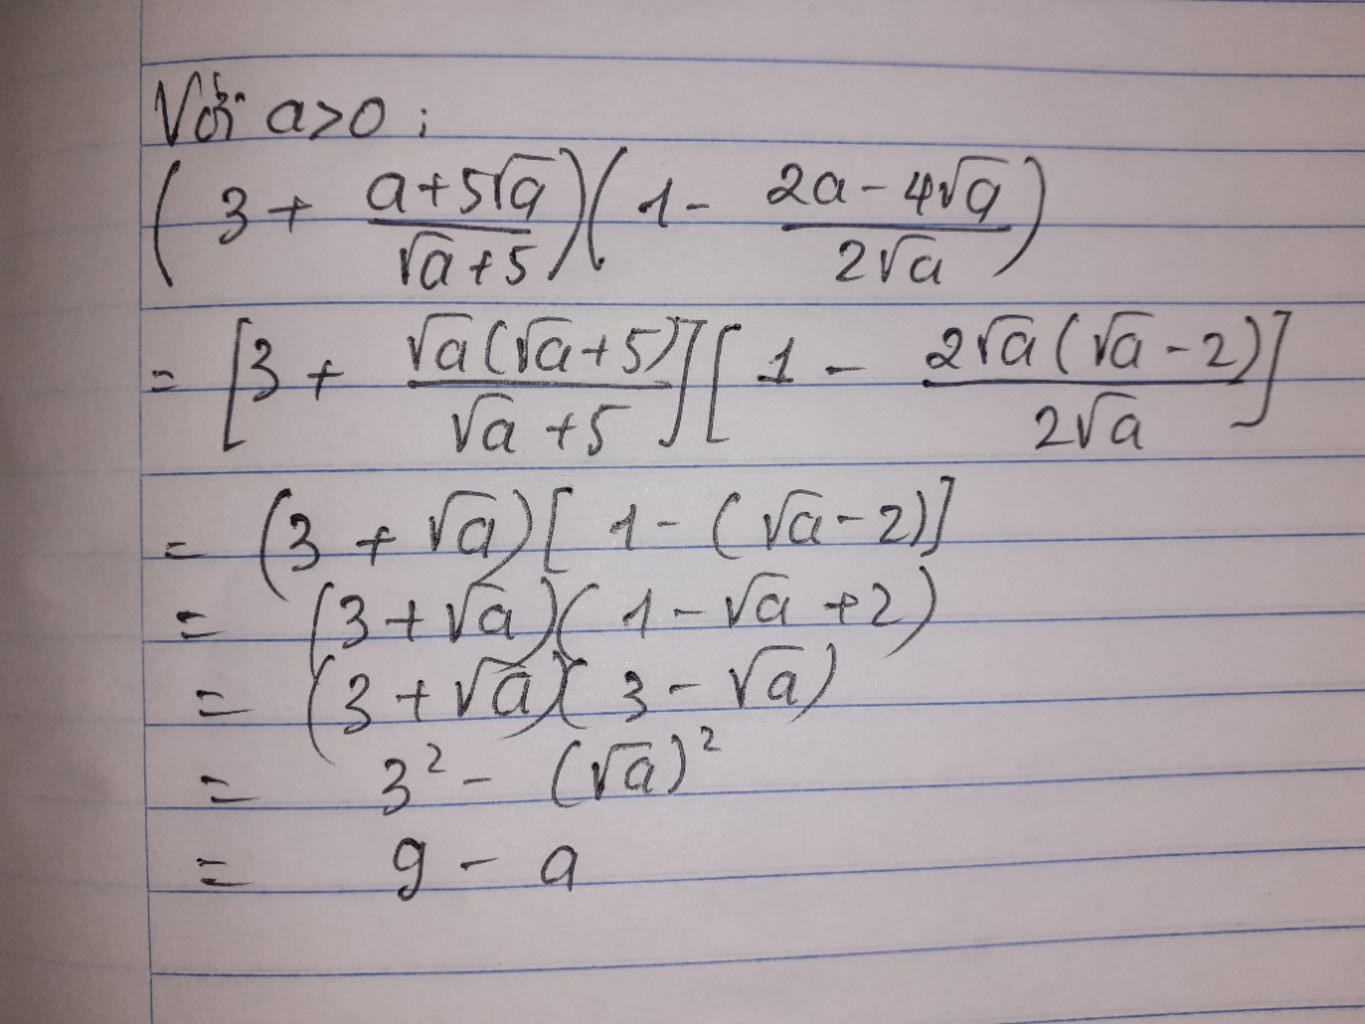 Với a>0 :
(3 + (a+5√a)/(√a+5))(1 - (2a-4√a)/(2√a))
= [3 + (√a(√a+5))/(√a+5)][1 - (2√a(√a-2))/(2√a)]
= (3 + √a)[1-(√a-2)]
= (3+√a)(1-√a+2)
= (3+√a)(3-√a)
= 3² - (√a)²
= 9 - a